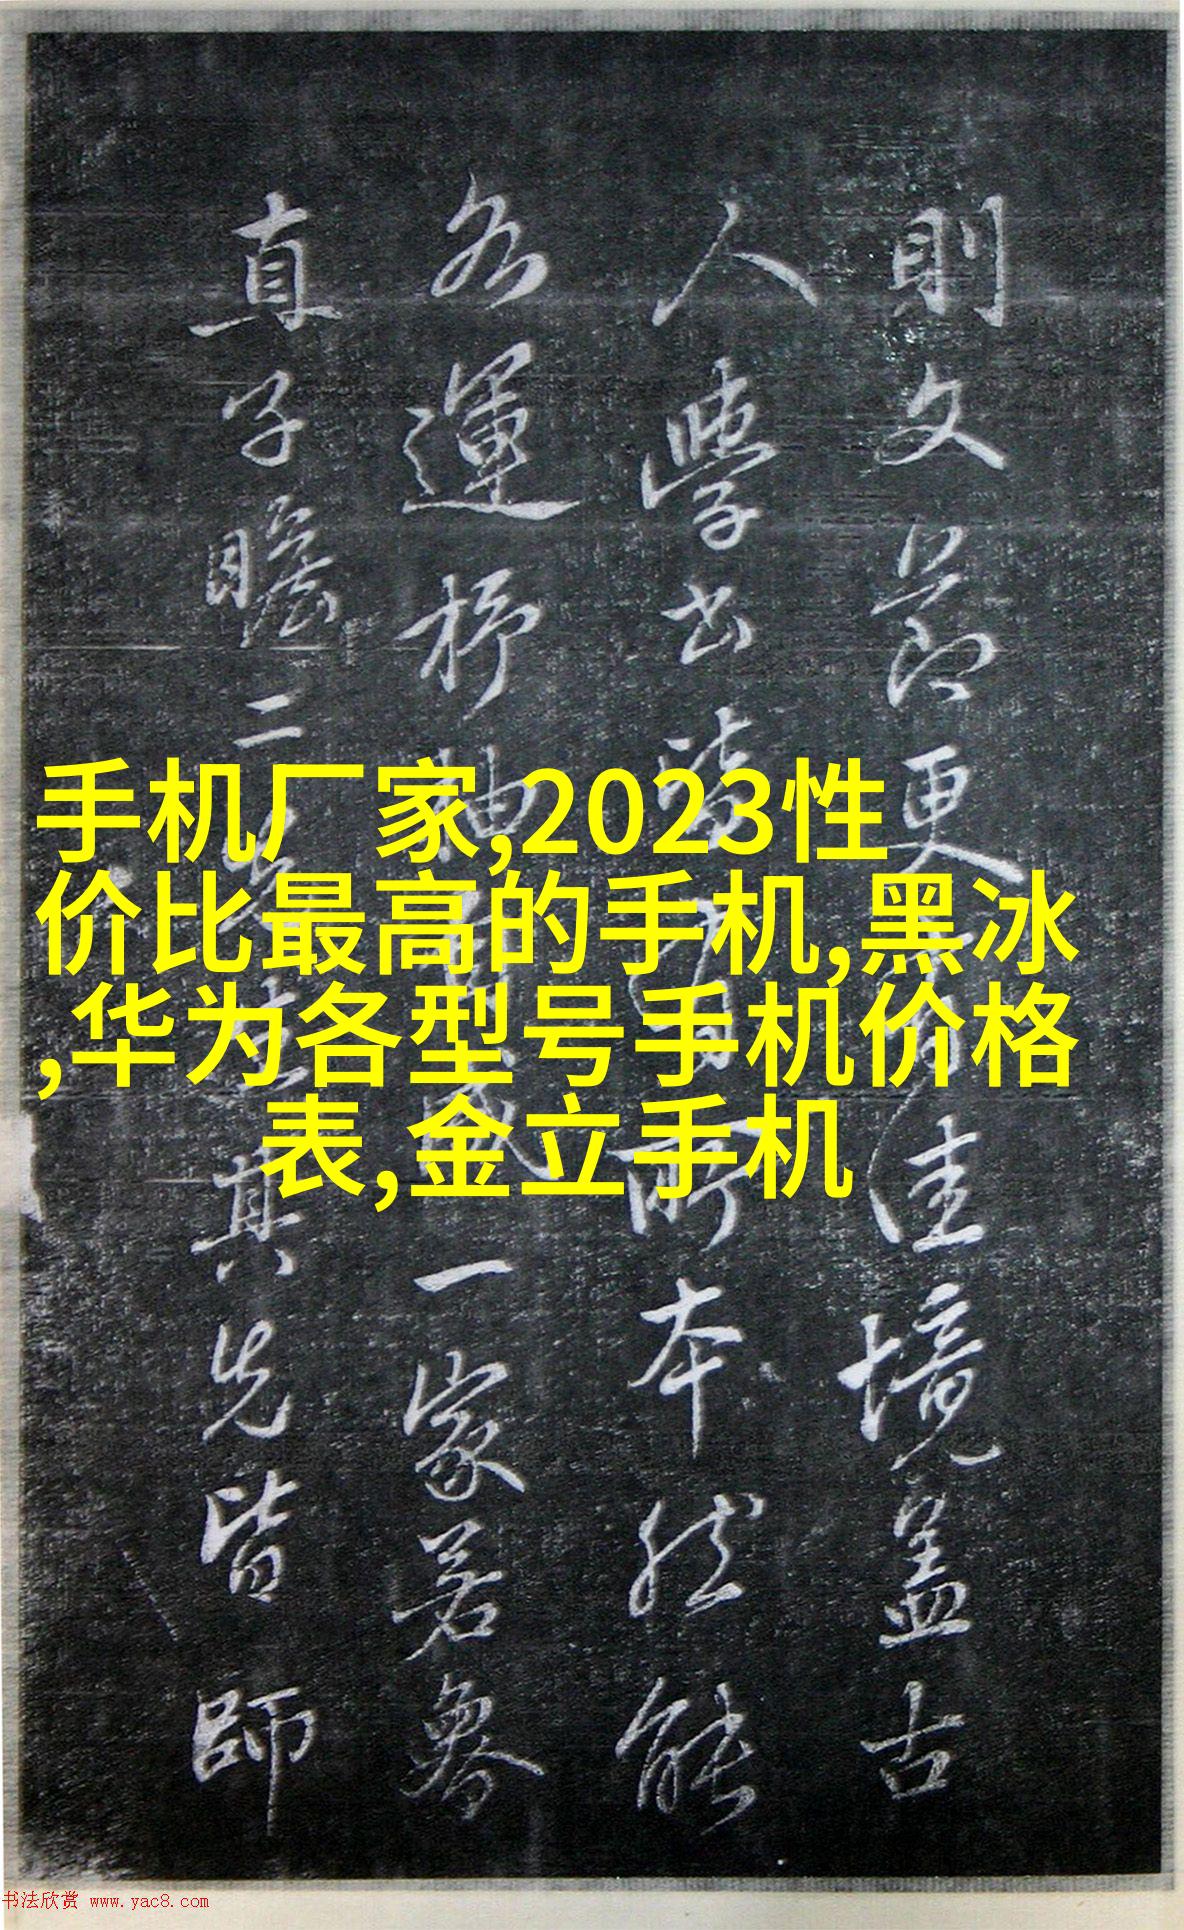 則文節更有佳境蓋古
人學書皆有所本然能
名運杼軸自成一家若魯
直子瞻二
其先皆師
手机厂家,2023性
价比最高的手机,黑冰
,华为各型号手机价格
表,金立手机
书法欣赏 www.yac8.com